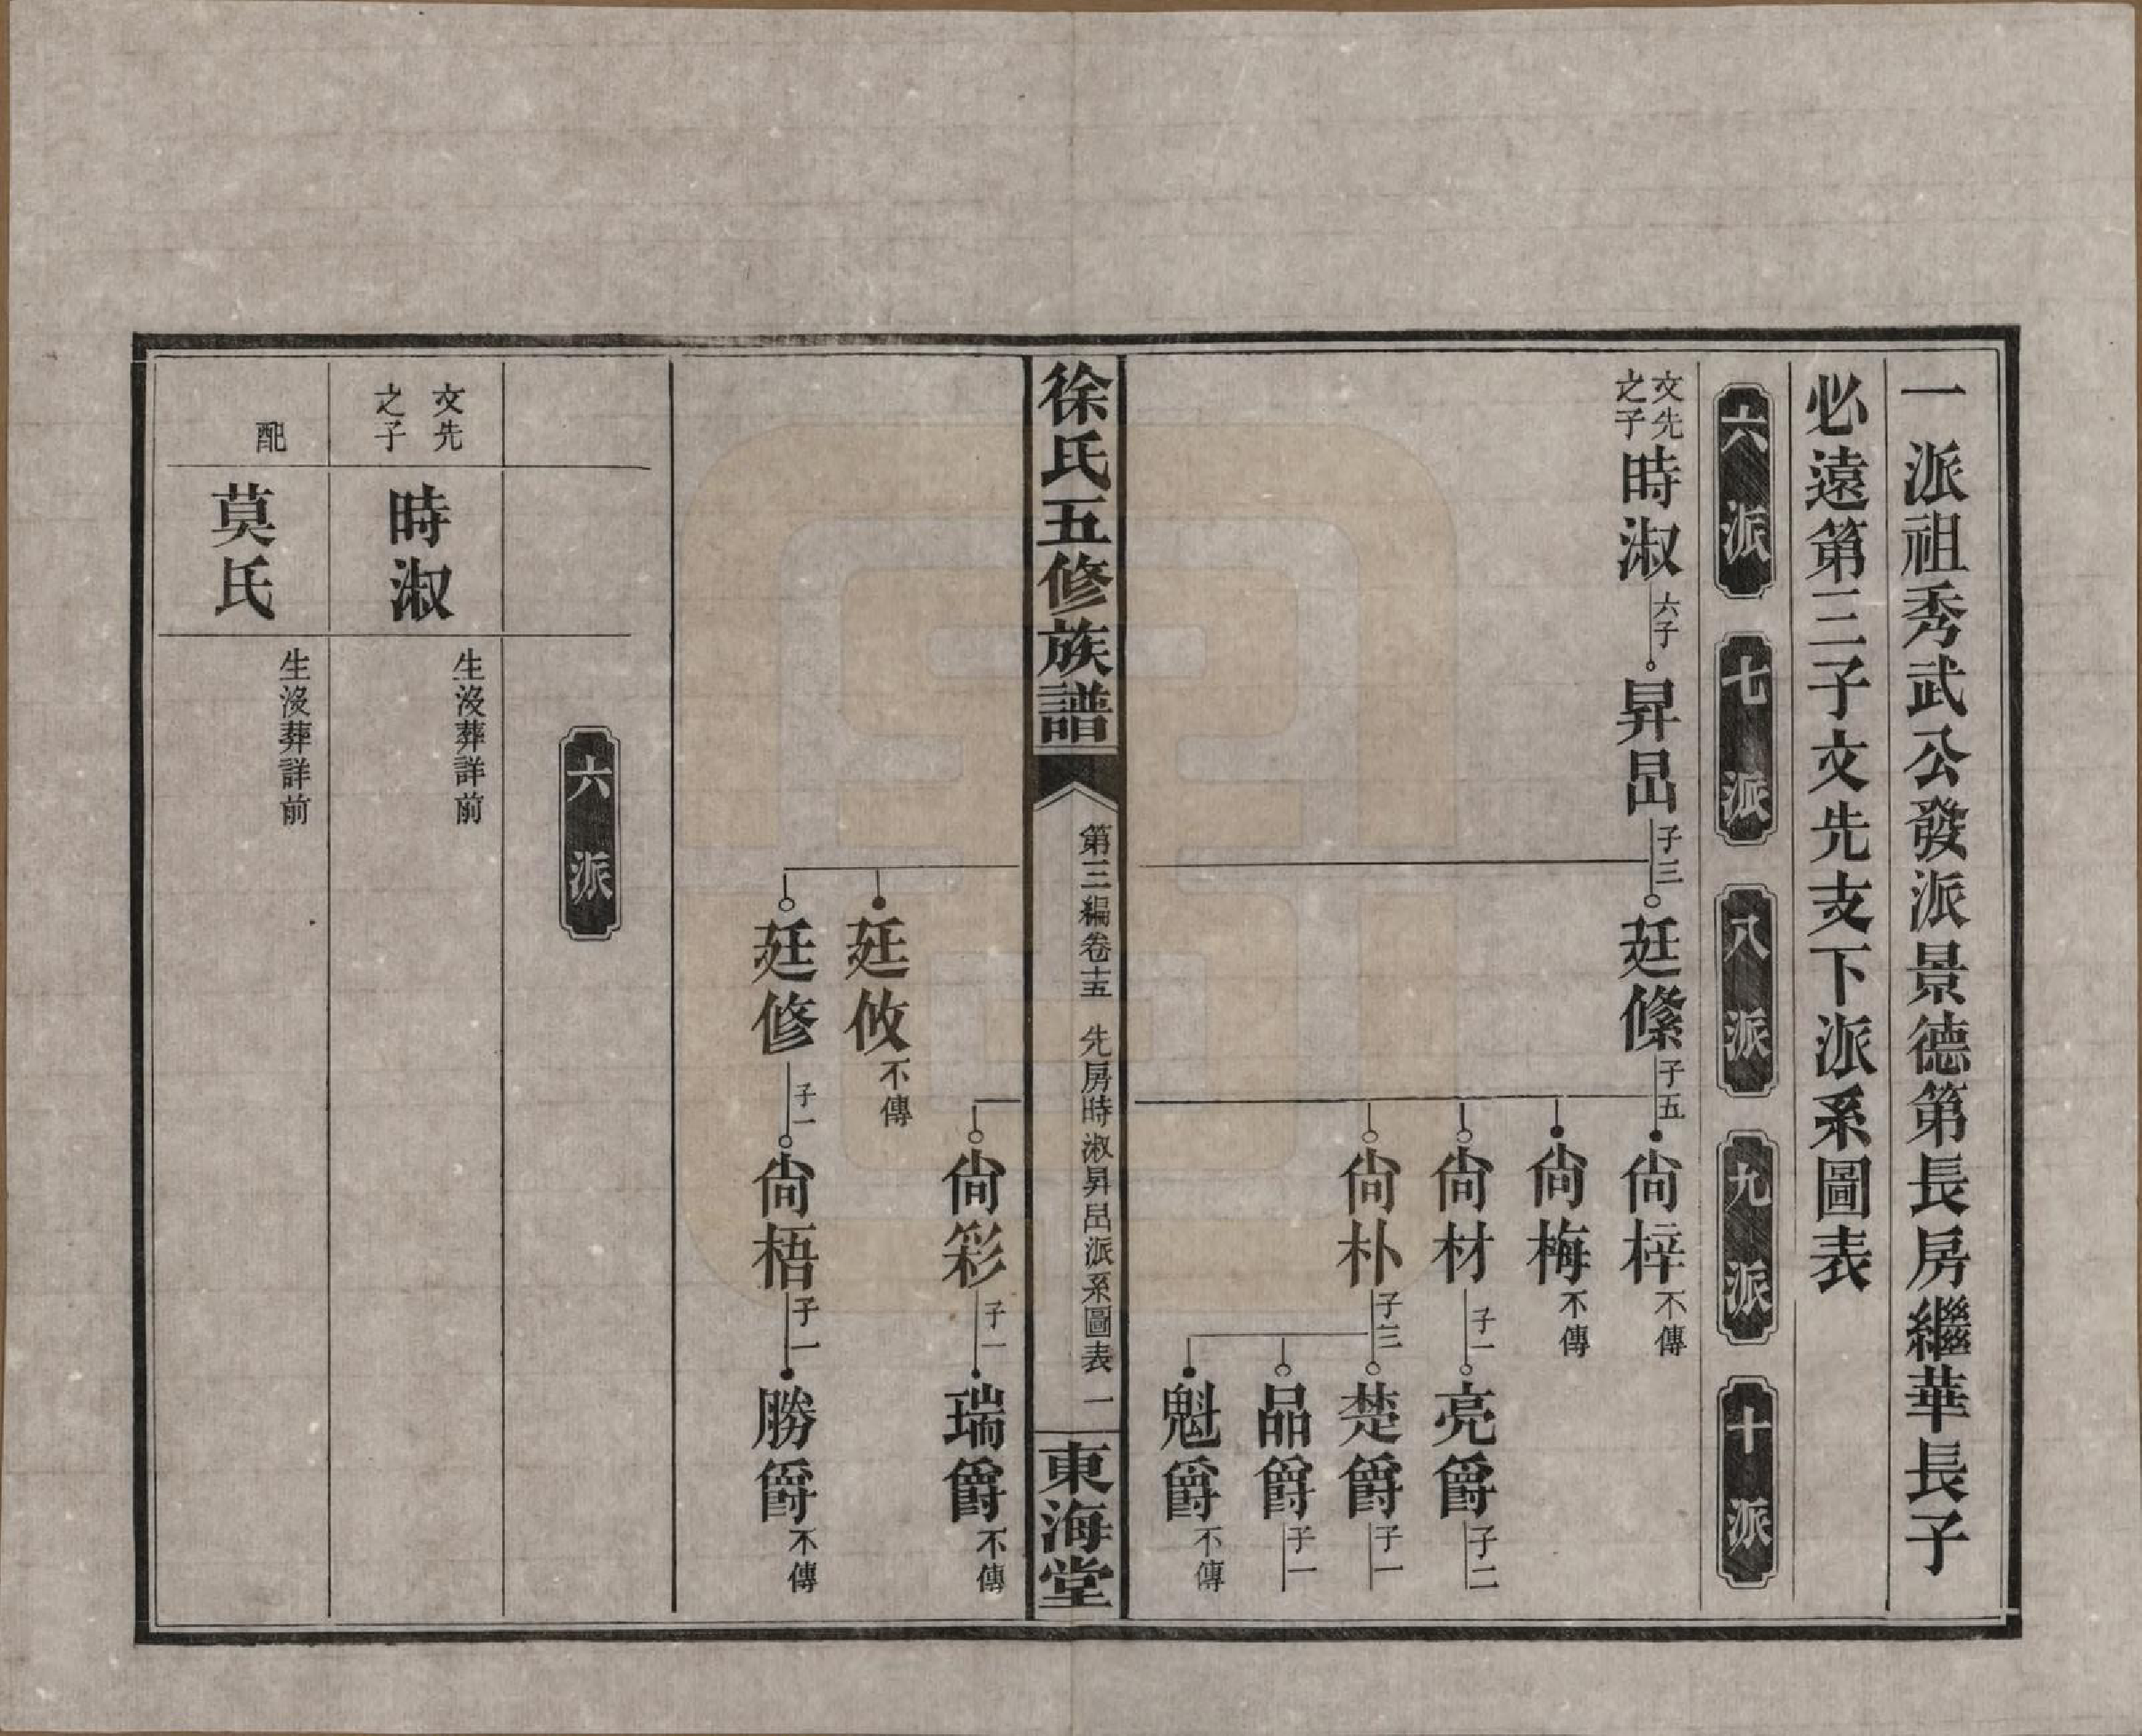 一派祖秀武公發派景德第長房繼華長子
必遠第三子文先支下派系圖表
六派
七派
八派
九派
十派
文先之子
時淑
六子
昇昷
子三
廷絛
子五
尙梓
不傳
尙梅
不傳
尙材
子一
亮爵
子二
尙朴
子三
楚爵
子一
品爵
子一
魁爵
不傳
徐氏五修族譜
第三編卷十五 先房時淑昇昷派系圖表 一
東海堂
尙彩
子一
瑞爵
不傳
廷攸
不傳
廷修
子一
尙梧
子一
勝爵
不傳
六派
文先之子
時淑
生沒葬詳前
配
莫氏
生沒葬詳前